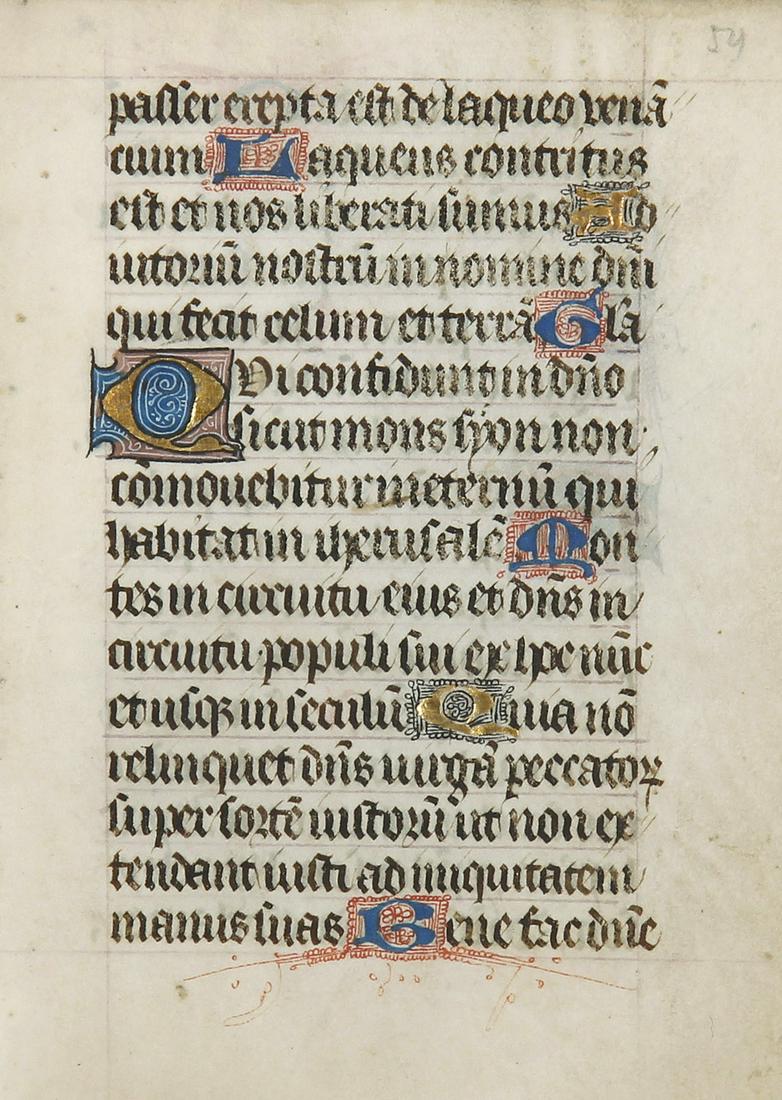 54
passer erepta est de laqueo venā
cium Laqueus contritus
est et nos liberati sumus Ad
iutoriū nostrū in nomine dn̄i
qui fecit celum et terrā Gla
QVi confidunt in dn̄o
sicut mons syon non
cōmovebitur in eternū qui
habitat in iherusalē Mon
tes in circuitu eius et dn̄s in
circuitu populi sui ex hoc nūc
et usqꝫ in seculū Quia nō
relinquet dn̄s uirgā peccatoꝝ
super sortē iustorū ut non ex
tendant iusti ad iniquitatem
manus suas Bene fac dn̄e